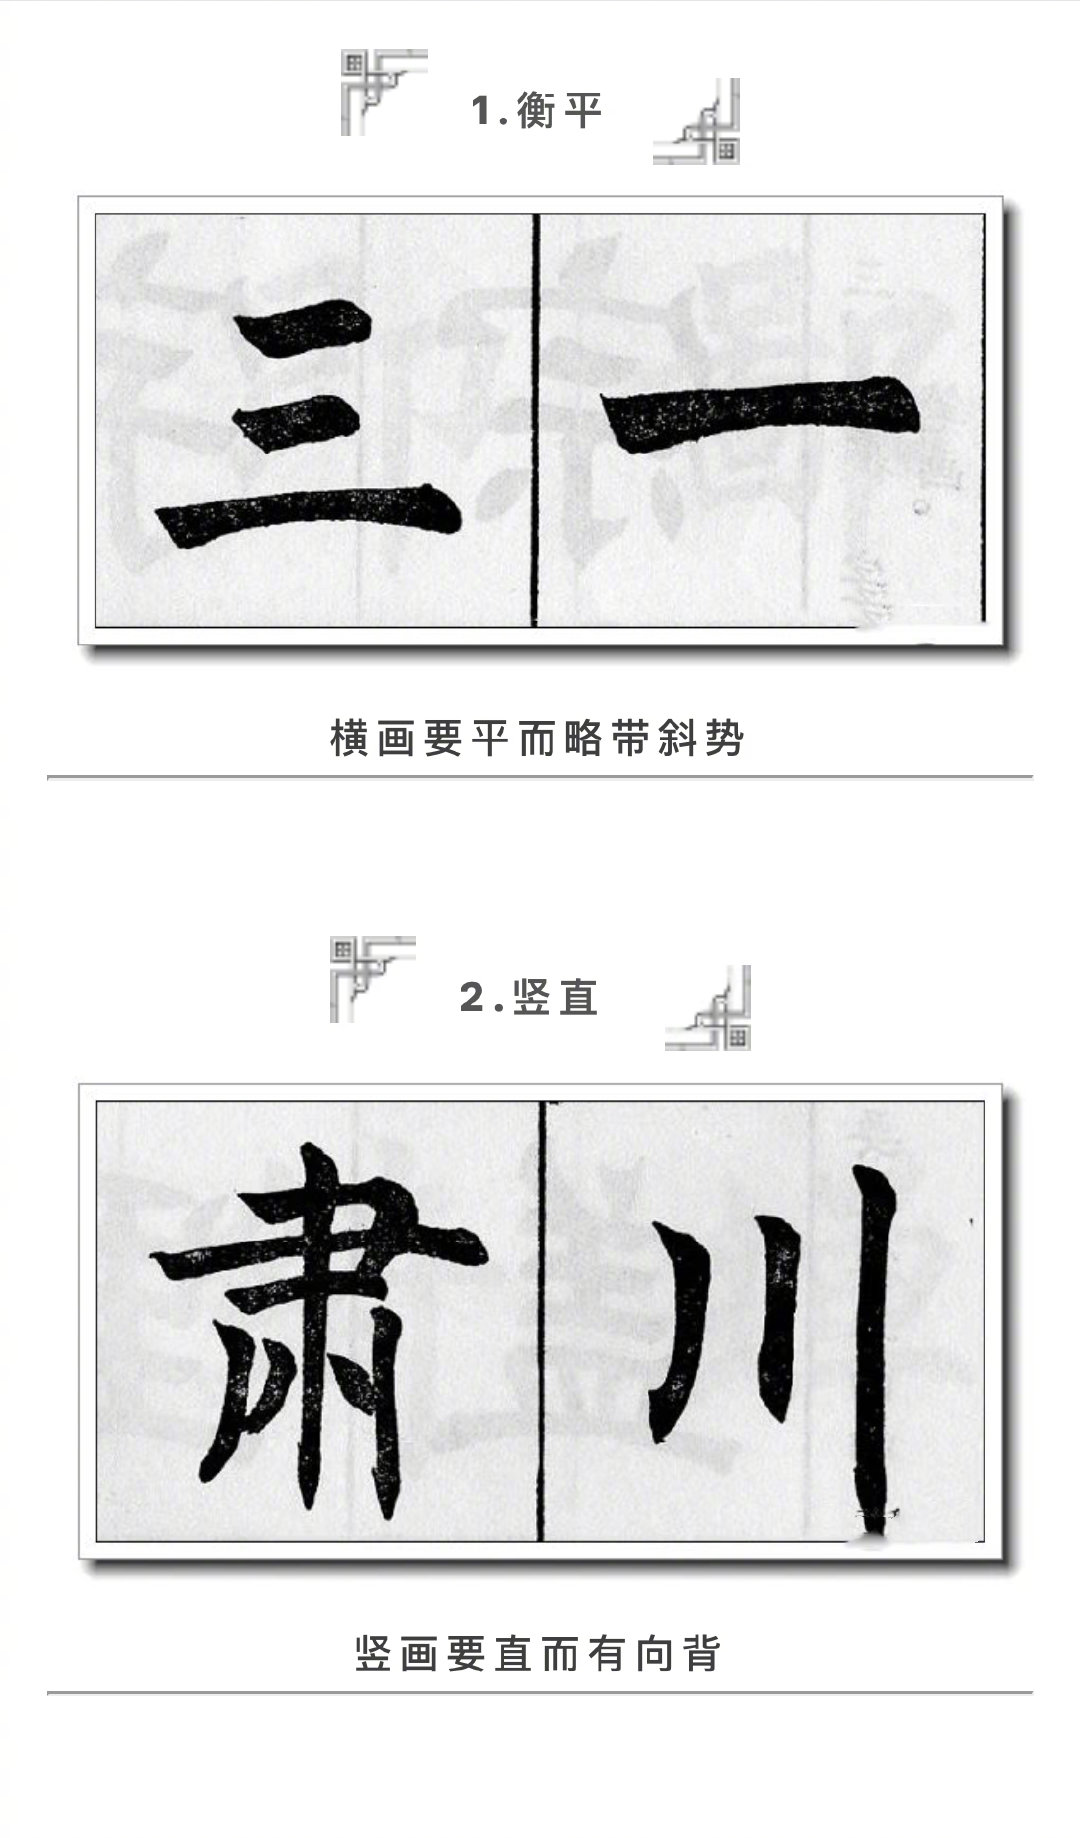 1.衡平
三一
横画要平而略带斜势
2.竖直
肃川
竖画要直而有向背